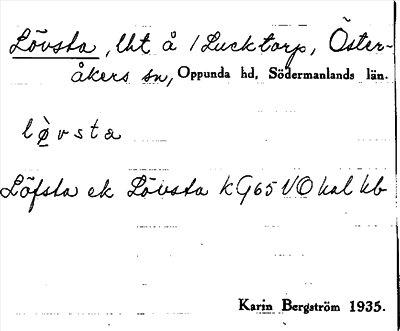 Lövsta, lht å 1 Lucktorp, Öster-
åkers sn, Oppunda hd, Södermanlands län.
lø̀vsta
Löfsta ek Lövsta kG65 VO kal kb
Karin Bergström 1935.